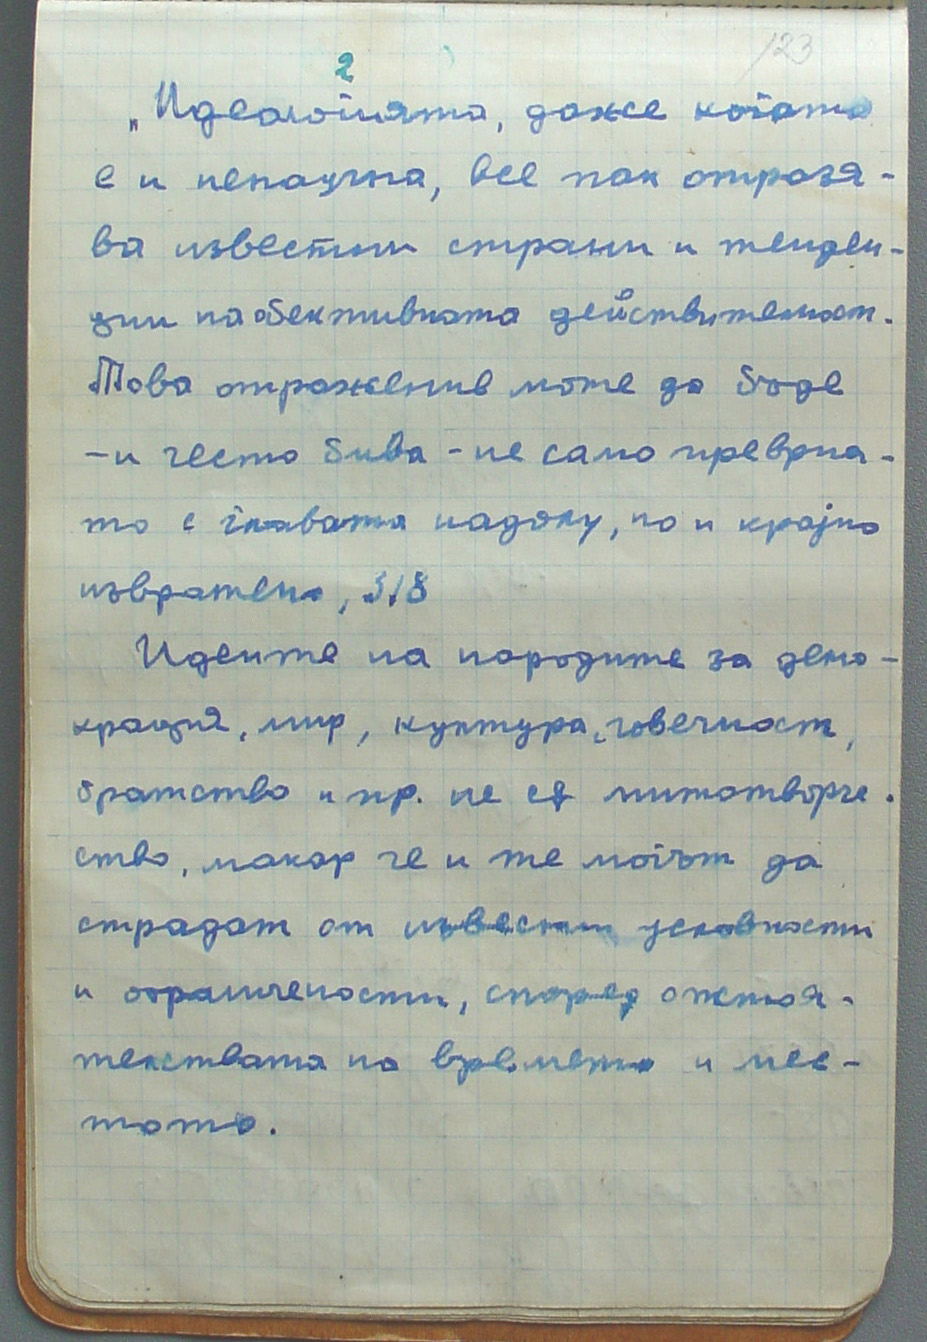 123
2
„Идеологията, даже когато
е и ненаучна, все пак отразя-
ва известни страни и тенден-
ции на обективната действителност.
Това отражение може да бъде
– и често бива – не само преврна-
то с главата надолу, но и крајно
извратено, 318
Идеите на народите за демо-
крация, мир, култура, човечност,
братство и пр. не сѫ митотворче-
ство, макар че и те могът да
страдат от известни условности
и ограничености, според обстоя-
телствата на времето и мес-
тото.